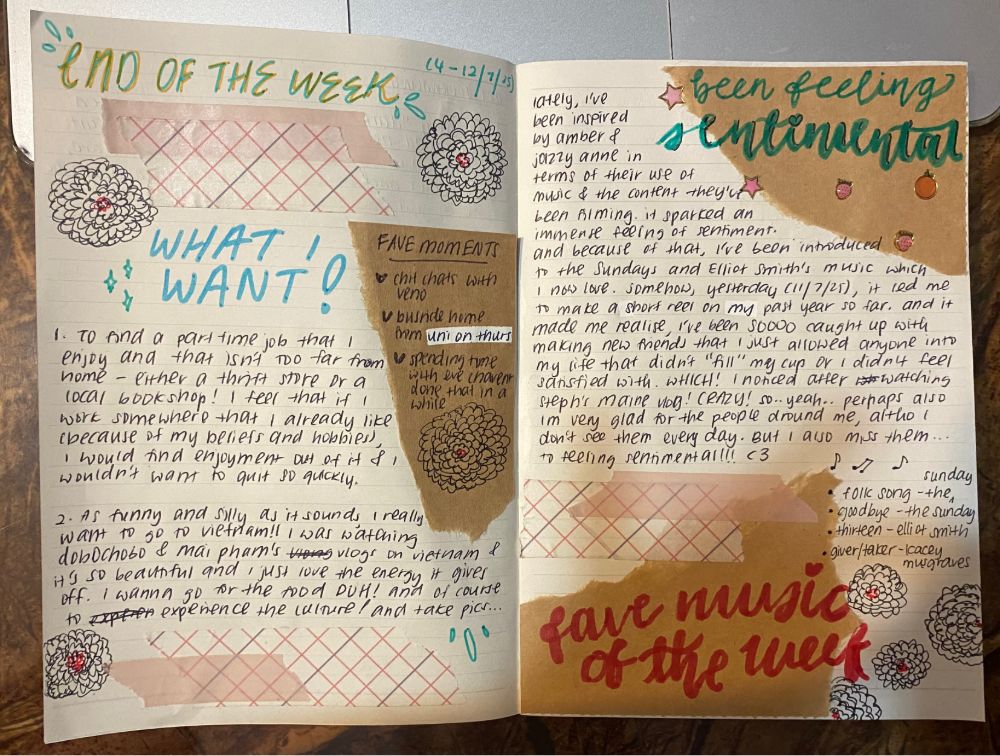 END OF THE WEEK
(4-12/7/25)
WHAT I
WANT!
1. To find a part time job that I
enjoy and that isn't too far from
home - either a thrift store or a
local bookshop! I feel that if I
work somewhere that I already like
(because of my beliefs and hobbies),
I would find enjoyment out of it & I
wouldn't want to quit so quickly.
2. As funny and silly as it sounds I really
want to go to Vietnam!! I was watching
dobochobo & mai pham's vlogs on vietnam &
it's so beautiful and I just love the energy it gives
off. I wanna go for the food DUH! and of course
to experience the culture! and take pics...
FAVE MOMENTS
chit chats with
veno
busride home
from uni on thurs
spending time
with eve (haven't
done that in a
while
been feeling
sentimental
lately, I've
been inspired
by amber &
jazzy anne in
terms of their use of
music & the content they've
been filming. it sparked an
immense feeling of sentiment.
and because of that, I've been introduced
to the Sundays and Elliot Smith's music which
I now love. somehow, yesterday (11/7/25), it led me
to make a short reel on my past year so far. and it
made me realise, I've been SOOOO caught up with
making new friends that I just allowed anyone into
my life that didn't "fill" my cup or I didn't feel
satisfied with. WHICH! I noticed after watching
steph's maine vlog! CRAZY! so.. yeah.. perhaps also
im very glad for the people around me, altho I
don't see them every day. But I also miss them...
to feeling sentimental!!! <3
• folk song - the sunday
• goodbye - the sunday
• thirteen - elliot smith
• giver/taker - kacey
musgraves
fave music
of the week